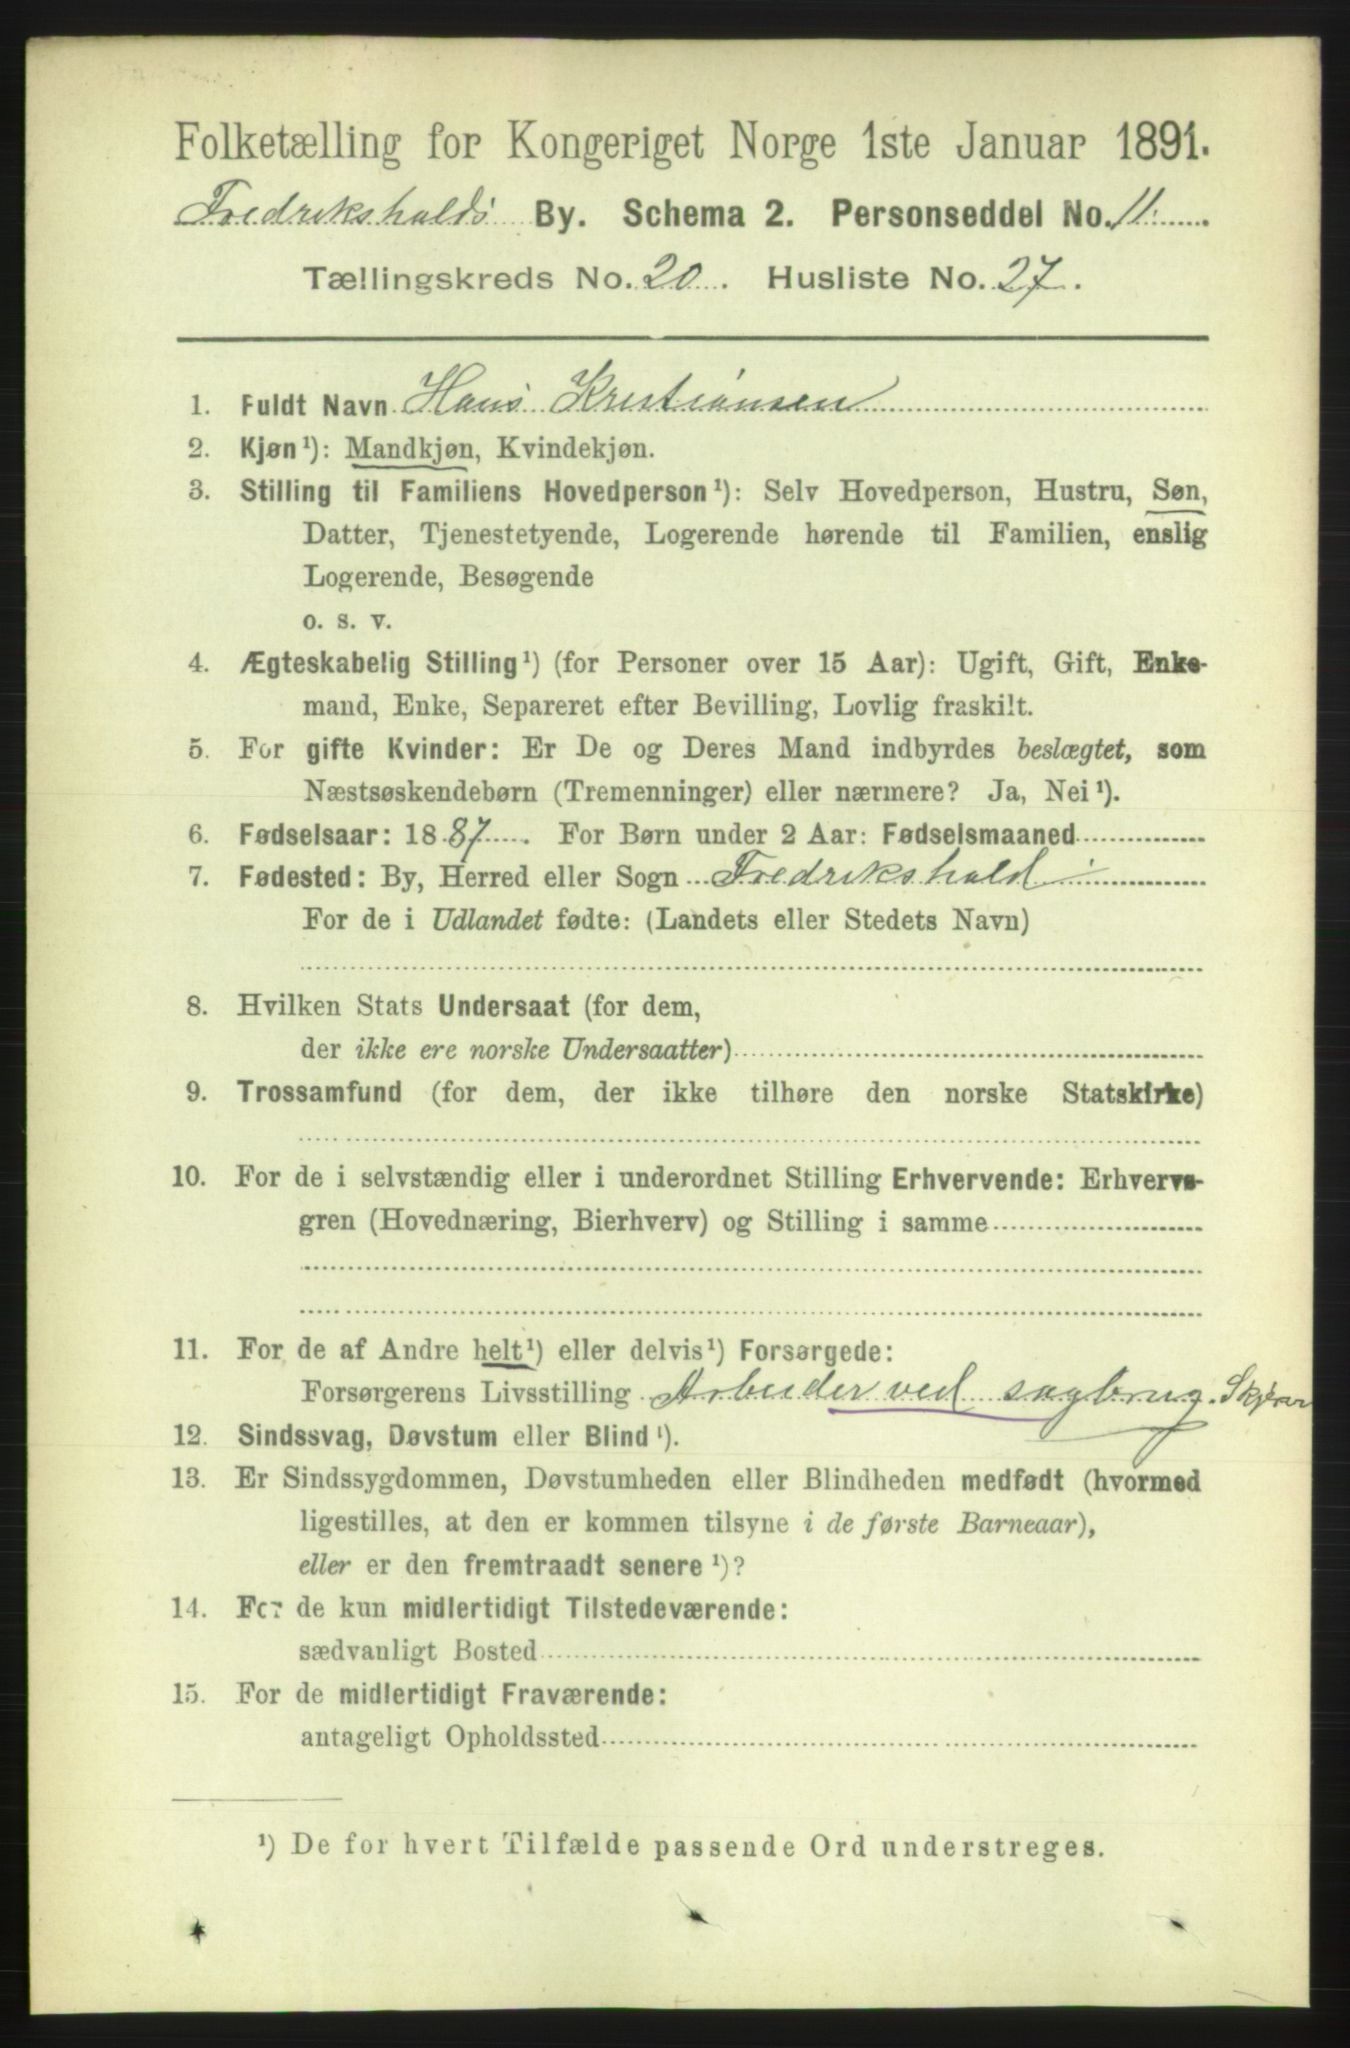 Folketælling for Kongeriget Norge 1ste Januar 1891.
Fredrikshalds By. Schema 2. Personseddel No. 11
Tællingskreds No. 20. Husliste No. 27.
1. Fuldt Navn Hans Kristiansen
2. Kjøn¹): Mandkjøn, Kvindekjøn.
3. Stilling til Familiens Hovedperson¹): Selv Hovedperson, Hustru, Søn,
Datter, Tjenestetyende, Logerende hørende til Familien, enslig
Logerende, Besøgende
o. s. v.
4. Ægteskabelig Stilling¹) (for Personer over 15 Aar): Ugift, Gift, Enke-
mand, Enke, Separeret efter Bevilling, Lovlig fraskilt.
5. For gifte Kvinder: Er De og Deres Mand indbyrdes beslægtet, som
Næstsøskendebørn (Tremenninger) eller nærmere? Ja, Nei¹).
6. Fødselsaar: 1887. For Børn under 2 Aar: Fødselsmaaned
7. Fødested: By, Herred eller Sogn Fredrikshald
For de i Udlandet fødte: (Landets eller Stedets Navn)
8. Hvilken Stats Undersaat (for dem,
der ikke ere norske Undersaatter)
9. Trossamfund (for dem, der ikke tilhøre den norske Statskirke)
10. For de i selvstændig eller i underordnet Stilling Erhvervende: Erhvervs-
gren (Hovednæring, Bierhverv) og Stilling i samme
11. For de af Andre helt¹) eller delvis¹) Forsørgede:
Forsørgerens Livsstilling Arbeider ved sagbrug. Skjærer
12. Sindssvag, Døvstum eller Blind¹).
13. Er Sindssygdommen, Døvstumheden eller Blindheden medfødt (hvormed
ligestilles, at den er kommen tilsyne i de første Barneaar),
eller er den fremtraadt senere¹)?
14. For de kun midlertidigt Tilstedeværende:
sædvanligt Bosted
15. For de midlertidigt Fraværende:
antageligt Opholdssted
¹) De for hvert Tilfælde passende Ord understreges.